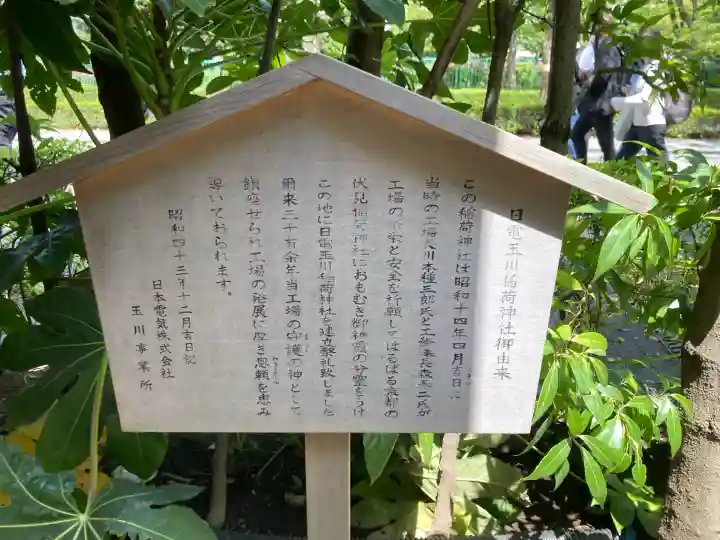 日電玉川稲荷神社御由来
この稲荷神社は昭和十四年四月吉日に
当時の工場長川本種三郎氏と工務長森本二氏が
工場の繁栄と安全を祈願してはるばる京都の
伏見稲荷神社におもむき御祭霊の分霊をうけ
この地に日電玉川稲荷神社を建立祭祀致しました
爾来三十有余年当工場の守護の神として
鎮座せられ工場の発展に厚き恩頼を恵み
導いておられます。
昭和四十三年十二月吉日記
日本電気株式会社
玉川事業所